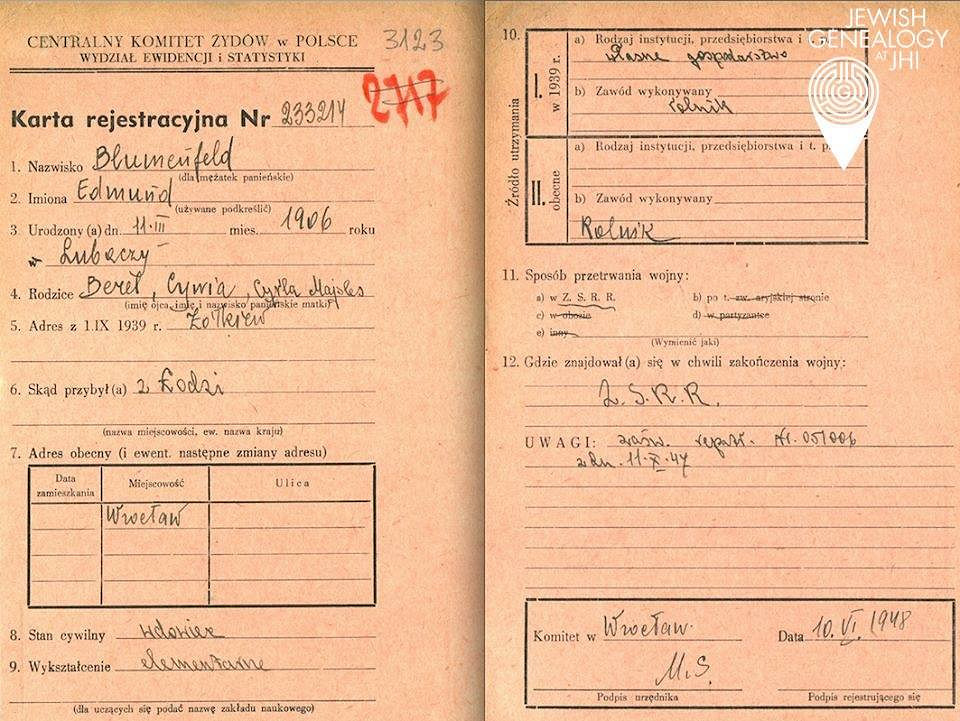 CENTRALNY KOMITET ŻYDÓW w POLSCE
WYDZIAŁ EWIDENCJI i STATYSTYKI
3123
2717
Karta rejestracyjna Nr 233214
1. Nazwisko Blumenfeld
(dla mężatek panieńskie)
2. Imiona Edmund
(używane podkreślić)
3 Urodzony (a) dn. 11·III mies. 1906 roku
w Lubaczy
4. Rodzice Bereł, Cywia, Cyrla Majsles
(imię ojca, imię i nazwisko panieńskie matki)
5. Adres z 1.IX 1939 r. Żółkiew
6. Skąd przybył (a) z Łodzi
(nazwa miejscowości, ew. nazwa kraju)
7. Adres obecny (i ewent. następne zmiany adresu)
Data zamieszkania Miejscowość Ulica
Wrocław
8. Stan cywilny wdowiec
9. Wykształcenie elementarne
(dla uczących się podać nazwę zakładu naukowego)
JEWISH
GENEALOGY
AT
JHI
10. Źródło utrzymania
I. w 1939 r.
a) Rodzaj instytucji, przedsiębiorstwa i t. p.
własne gospodarstwo
b) Zawód wykonywany
rolnik
II. obecne
a) Rodzaj instytucji, przedsiębiorstwa i t. p.
b) Zawód wykonywany
Rolnik
11. Sposób przetrwania wojny:
a) w Z. S. R. R. b) po t. zw. aryjskiej stronie
c) w obozie d) w partyzantce
e) inny
(Wymienić jaki)
12. Gdzie znajdował (a) się w chwili zakończenia wojny:
Z. S. R. R.
UWAGI: zaśw. repatr. Nr. 051006
z dn. 11·X·47
Komitet w Wrocław. Data 10. VI. 1948
M.S.
Podpis urzędnika Podpis rejestrującego się